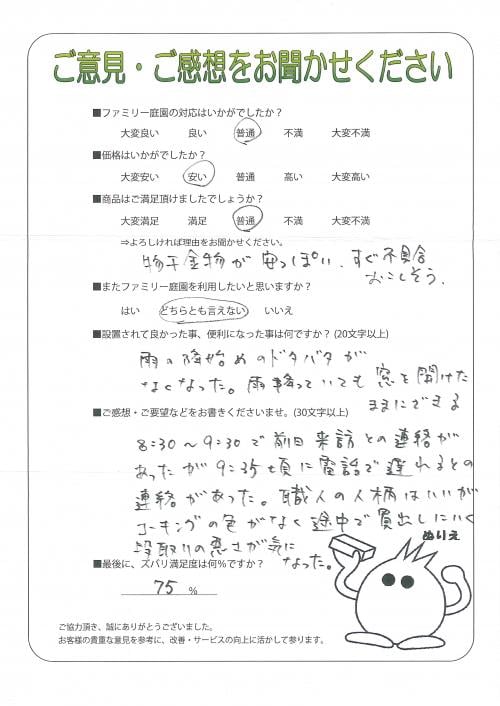 ご意見・ご感想をお聞かせください
■ファミリー庭園の対応はいかがでしたか？
大変良い 良い 普通 不満 大変不満
■価格はいかがでしたか？
大変安い 安い 普通 高い 大変高い
■商品はご満足頂けましたでしょうか？
大変満足 満足 普通 不満 大変不満
⇒よろしければ理由をお聞かせください。
物干金物が安っぽい、すぐ不具合
おこしそう。
■またファミリー庭園を利用したいと思いますか？
はい どちらとも言えない いいえ
■設置されて良かった事、便利になった事は何ですか？(20文字以上)
雨の降始めのドタバタが
なくなった。雨降っていても窓を開けた
ままにできる
■ご感想・ご要望などをお書きくださいませ。(30文字以上)
8:30〜9:30で前日来訪との連絡が
あったが9:35頃に電話で遅れるとの
連絡があった。職人の人柄はいいが
コーキングの色がなく途中で買出しにいく
段取りの悪さが気に
なった。
ぬりえ
■最後に、ズバリ満足度は何%ですか？
75 %
ご協力頂き、誠にありがとうございました。
お客様の貴重な意見を参考に、改善・サービスの向上に活かして参ります。